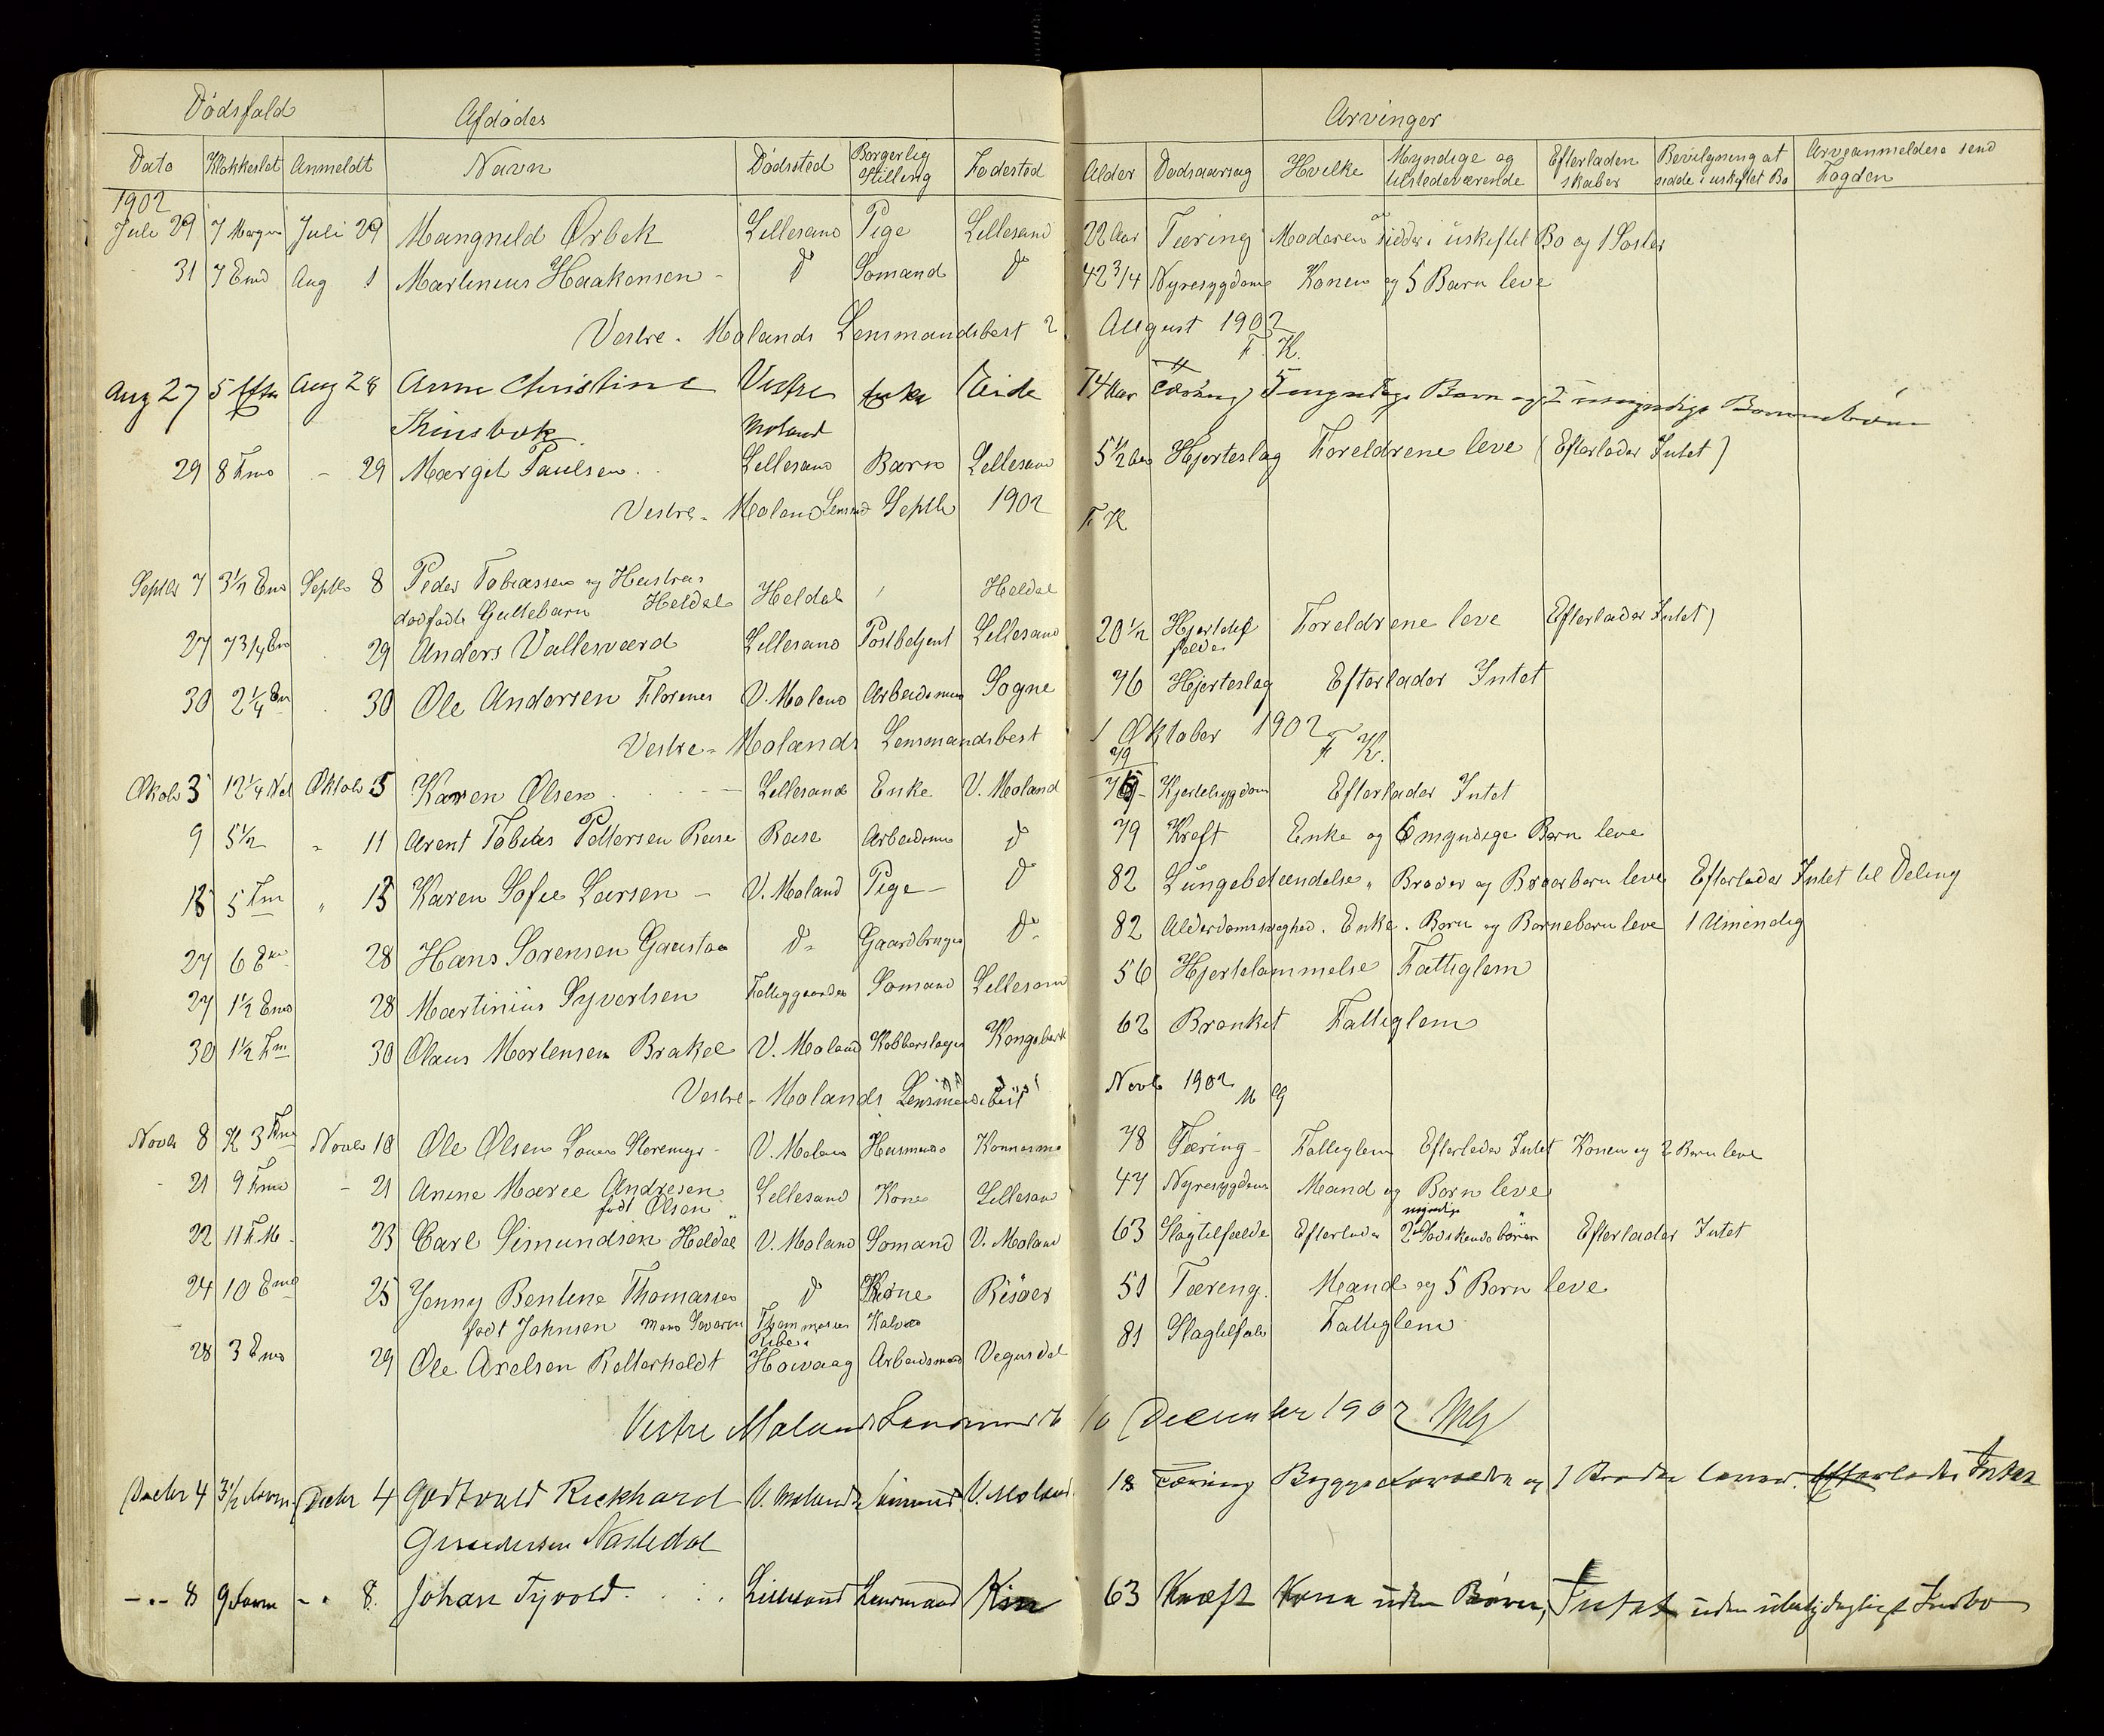 Dödsfald Afdödes Arvinger
Dato Klokkeslet Anmeldt Navn Dödssted Borgerlig Stilling Fodested Alder Dodsaarsag Hvilke Myndige og tilstedeværende Efterladenskaber Bevilgning at sidde i uskiftet Bo Arveanmeldere send Fogden
1902
Juli 29 7 Morgen Juli 29 Mangneld Ørbek Lillesand Pige Lillesand 22 Aar Tæring Moderen sidder i uskiftet Bo og 1 Soster
31 7 Emd Aug 1 Martinius Haakonsen - do Somand do 42 3/4 Nyresygdom Konen og 5 Barn leve
Vestre-Molands Lensmandsbest 2 August 1902
F. K.
Aug 27 5 Efter Aug 28 Anne Christine Vestre Enke Eide 74 Aar Tæring 5 myndige Barn og 2 umyndige Barnebörn
Moland
29 8 Fmd - 29 Margit Paulsen Lillesand Barn Lillesand 5 1/2 Aar Hjerteslag Foreldrene leve (Efterlader Intet)
Vestre-Moland Lensmd Septb 1902 F K
Septbr 7 3 1/2 Emd Septb 8 Peder Tobiassen og Hustrus Heldal Heldal
dodfodte Guttebarn Heldal
27 7 3/4 Em 29 Anders Vallesværd Lillesand Postbetjent Lillesand 20 1/2 Hjertefeil Foreldrene leve Efterlader Intet)
30 2 1/4 Em 30 Ole Andersen Florenes V. Moland Arbeidsmand Sogne 76 Hjerteslag Efterlader Intet
Vestre-Molands Lensmandsbest 1 Oktober 1902
F K.
79
Okob 3 12 1/4 Nat Oktob 5 Karen Olsen Lillesand Enke V. Moland Hjertesygdom Efterlader Intet
9 5 1/2 " 11 Arent Tobias Pettersen Reise Reise Arbeidsm do 79 Kreft Enke og 6 myndige Born leve
13 5 Fm " 15 Karen Sofie Larsen - V. Moland Pige - do 82 Lungebetændelse " Broder og Broderborn leve Efterlader Intet til Deling
27 6 Em 28 Hans Sorensen Gaustaa do Gaardbruger do 82 Alderdomssvaghed. Enke. Born og Barneborn leve 1 Umendig
27 1 1/2 Emd 28 Martinius Syvertsen Fattiggaarden Somand Lillesand 56 Hjertelammelse Fattiglem
30 1 1/2 Fm 30 Olaus Mortensen Brakel V. Moland Kobberslager Kongsberg 62 Bronkit Fattiglem
Vestre-Molands Lensmandsbest Novb 1902
M G
Novbr 8 Kl 3 Fmd Novbr 10 Ole Olsen V. Moland Husmand 78 Tæring - Fattiglem Efterlader Intet Konen og 2 Born leve
- 21 9 Fmd - 21 Anine Marie Andresen Lillesand Kone Lillesand 47 Nyresygdom Mand og Born leve
fodt Olsen
myndige
22 11 F.M. 23 Carl Simundsen Heldal V. Moland Somand V. Moland 63 Slagtilfælde Efterlader 2 Sodskendeborn Efterlader Intet
24 10 Emd 25 Jenny Bentine Thomassen do Kone Risöer 50 Tæreng. Mand og 5 Born leve
fodt Johnsen Thommassen
28 3 Emd 29 Ole Axelsen Retterholdt Hovaag Arbeidsmand Vegusdal 81 Slagtilfæld Fattiglem
Vestre Molands Lensmandb 10 December 1902 MG
Decbr 4 3 1/2 Decbr 4 Godtvald Rickhard V. Moland Sömand V. Moland 18 Tæring Begge Forældre og 1 Broder lever. Efterlader Intet
Gundersen Nastedal
-.- 8 9 Form -. 8. Johan Tyvold Lillesand Lensmand 63 Kræft Kone uden Börn, Intet uden ubetydeligt Indbo